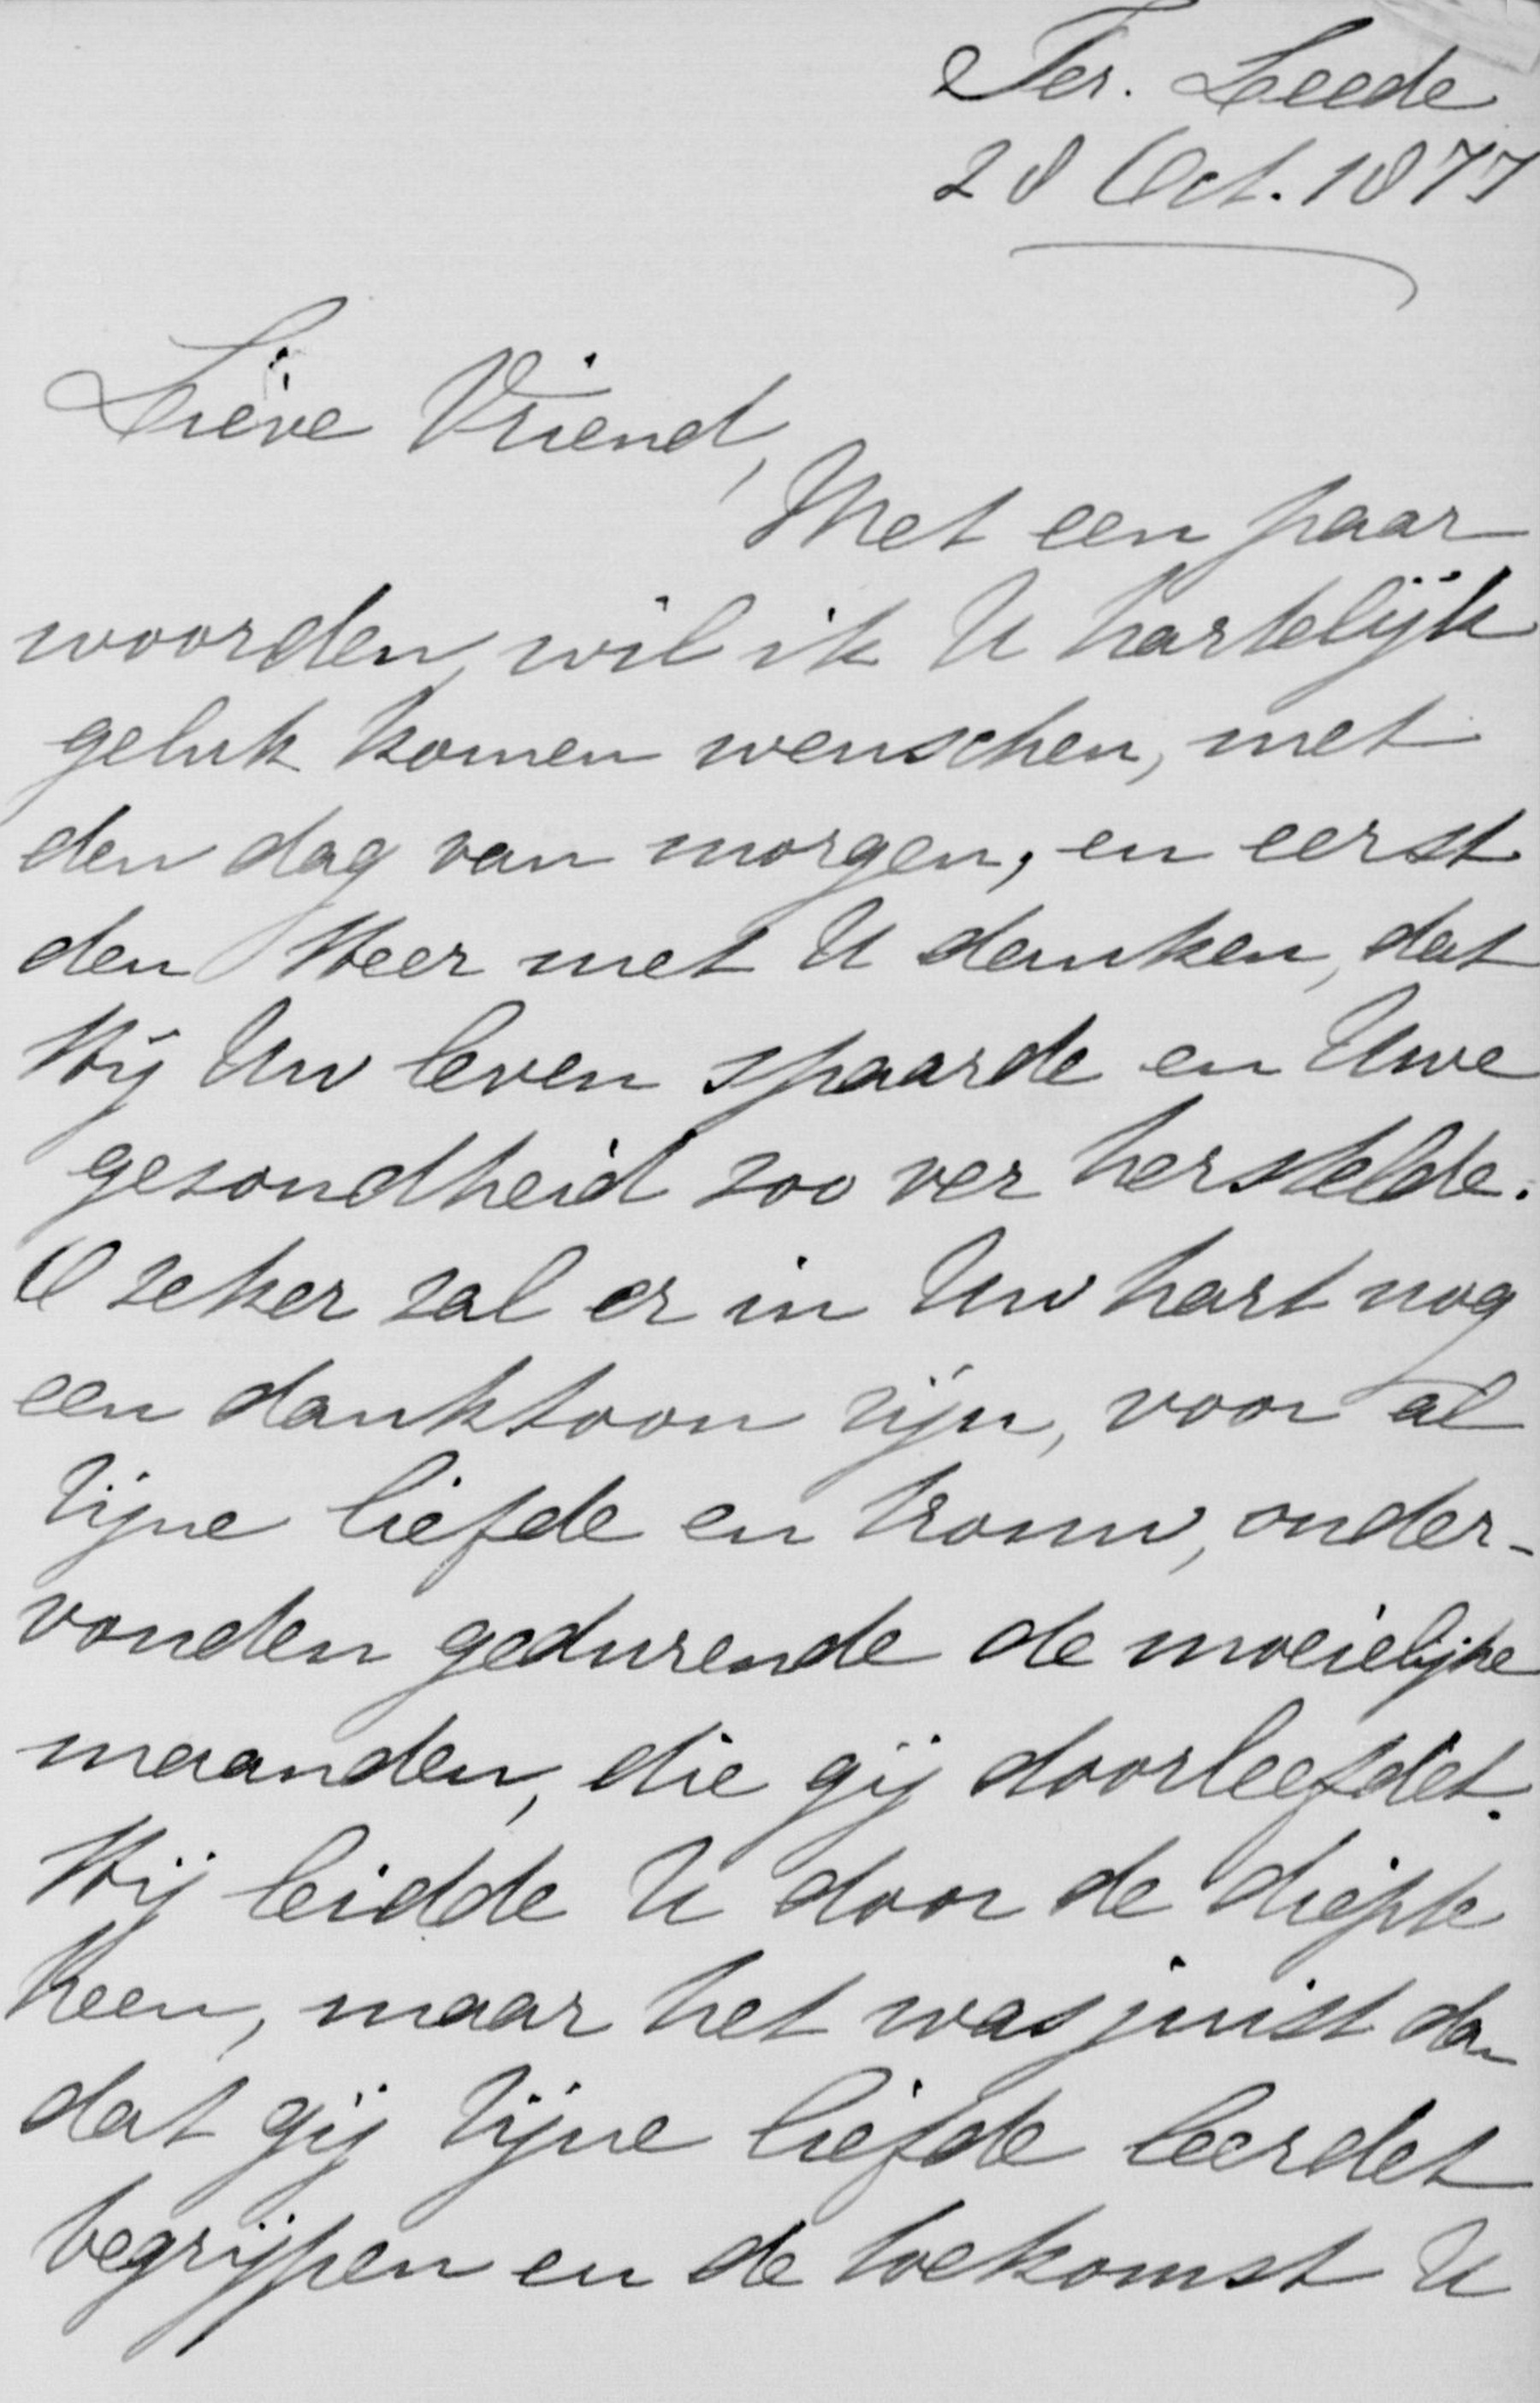 Ter. Leede
28 Oct. 1877
Lieve Vriend,
Met een paar
woorden, wil ik U hartelijk
geluk komen wenschen, met
den dag van morgen, en eerst
den Heer met U danken, dat
Hij Uw leven spaarde en Uwe
gezondheid zoo ver herstelde.
O zeker zal er in Uw hart nog
een danktoon zijn, voor al
Zijne liefde en trouw, onder-
vonden gedurende de moeielijke
maanden, die gij doorleefdet.
Hij leidde U door de diepte
heen, maar het was juist dan
dat gij Zijne liefde leerdet
begrijpen en de toekomst U